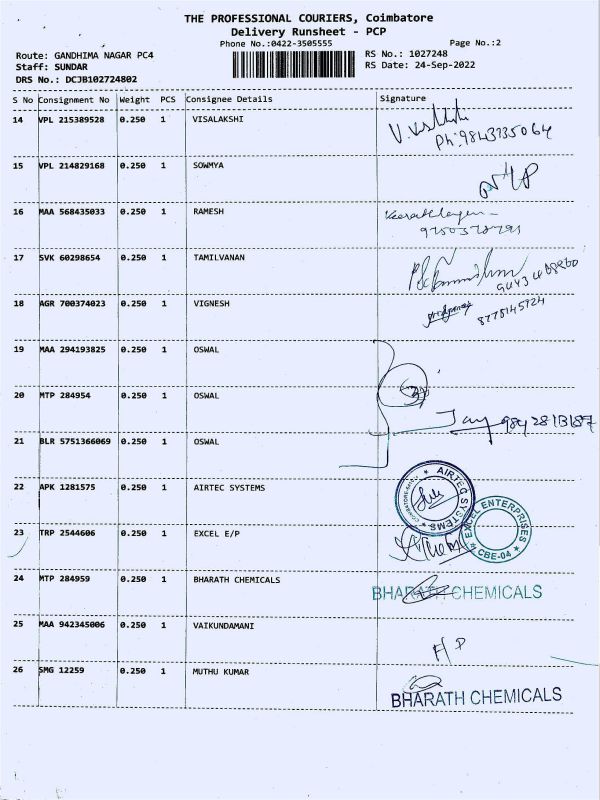 THE PROFESSIONAL COURIERS, Coimbatore
Delivery Runsheet - PCP
Phone No.:0422-3505555
Page No.:2
Route: GANDHIMA NAGAR PC4
RS No.: 1027248
Staff: SUNDAR
RS Date: 24-Sep-2022
DRS No.: DCJB102724802
S No Consignment No Weight PCS Consignee Details Signature
14 VPL 215389528 0.250 1 VISALAKSHI
Ph:9843735064
15 VPL 214829168 0.250 1 SOWMYA
16 MAA 568435033 0.250 1 RAMESH
17 SVK 60298654 0.250 1 TAMILVANAN
18 AGR 700374023 0.250 1 VIGNESH
8778145724
19 MAA 294193825 0.250 1 OSWAL
20 MTP 284954 0.250 1 OSWAL
21 BLR 5751366069 0.250 1 OSWAL
22 APK 1281575 0.250 1 AIRTEC SYSTEMS
AIRTEC SYSTEMS
23 TRP 2544606 0.250 1 EXCEL E/P
EXCEL ENTERPRISES
CBE-04
24 MTP 284959 0.250 1 BHARATH CHEMICALS
BHARATH CHEMICALS
25 MAA 942345006 0.250 1 VAIKUNDAMANI
26 SMG 12259 0.250 1 MUTHU KUMAR
BHARATH CHEMICALS